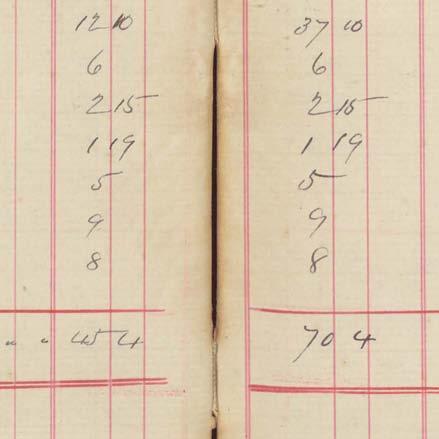 12 10
6
2 15
1 19
5
9
8
" " 45 4
37 10
6
2 15
1 19
5
9
8
70 4